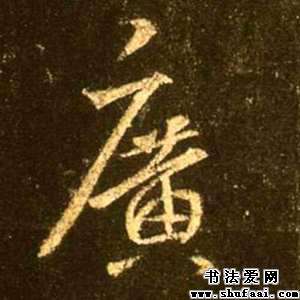 廣
书法爱网
www.shufaai.com